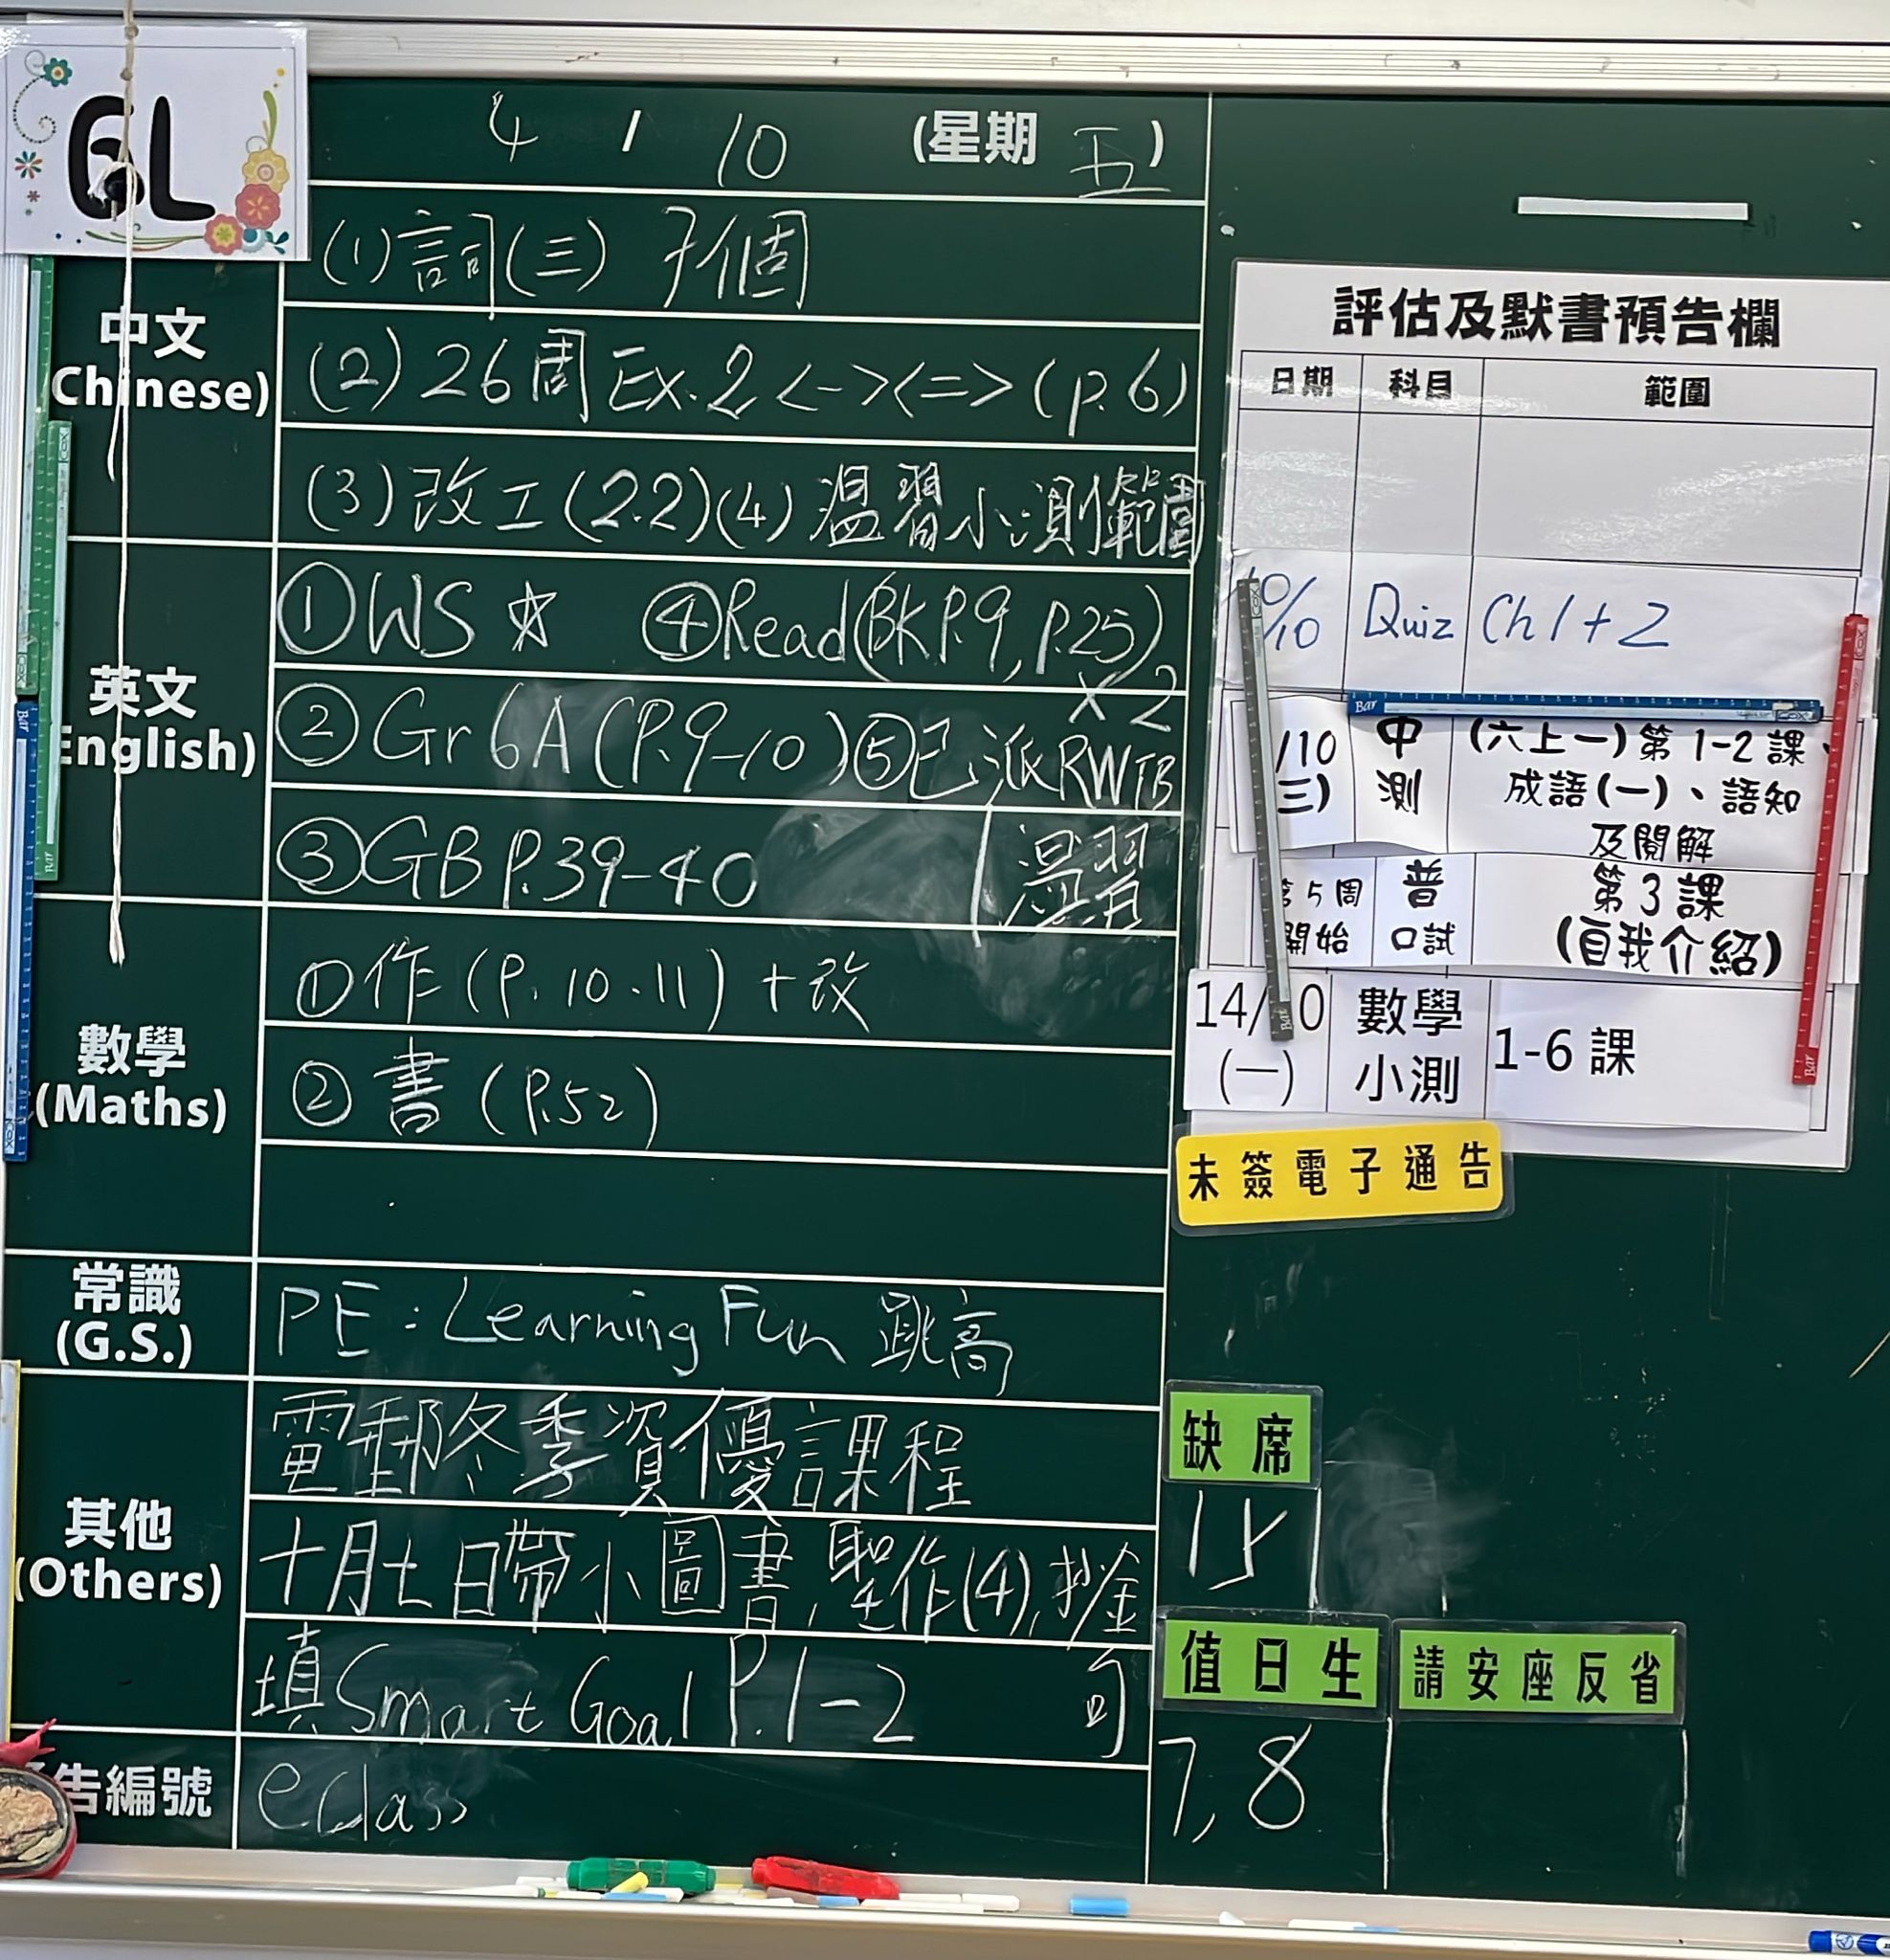 6L
4 / 10 (星期 五)
中文
Chinese)
(1) 詞(三) 子個
(2) 26周 Ex.2 <-><=> (p.6)
(3) 改工(2.2)(4) 溫習小測範圍
英文
English)
①WS ☆ ④Read(BK P.9, P.25)
×2
②Gr 6A (P.9-10) ⑤已派RWTB
③GB P.39-40 溫習
數學
(Maths)
①作 (P.10.11) + 改
②書 (P.52)
常識
(G.S.)
PE: Learning Fun 跳高
其他
(Others)
電郵冬季資優課程
十月七日帶小圖書,聖作(4),拾金
填Smart Goal P.1-2 句
告編號
eclass
評估及默書預告欄
日期 科目 範圍
10/10 Quiz Ch 1+2
/10 中 (六上一)第 1-2 課、
三) 測 成語(一)、語知
及閱解
5周 普 第3課
開始 口試 (自我介紹)
14/10 數學 1-6 課
(一) 小測
未簽電子通告
缺席
15
值日生 請安座反省
7,8